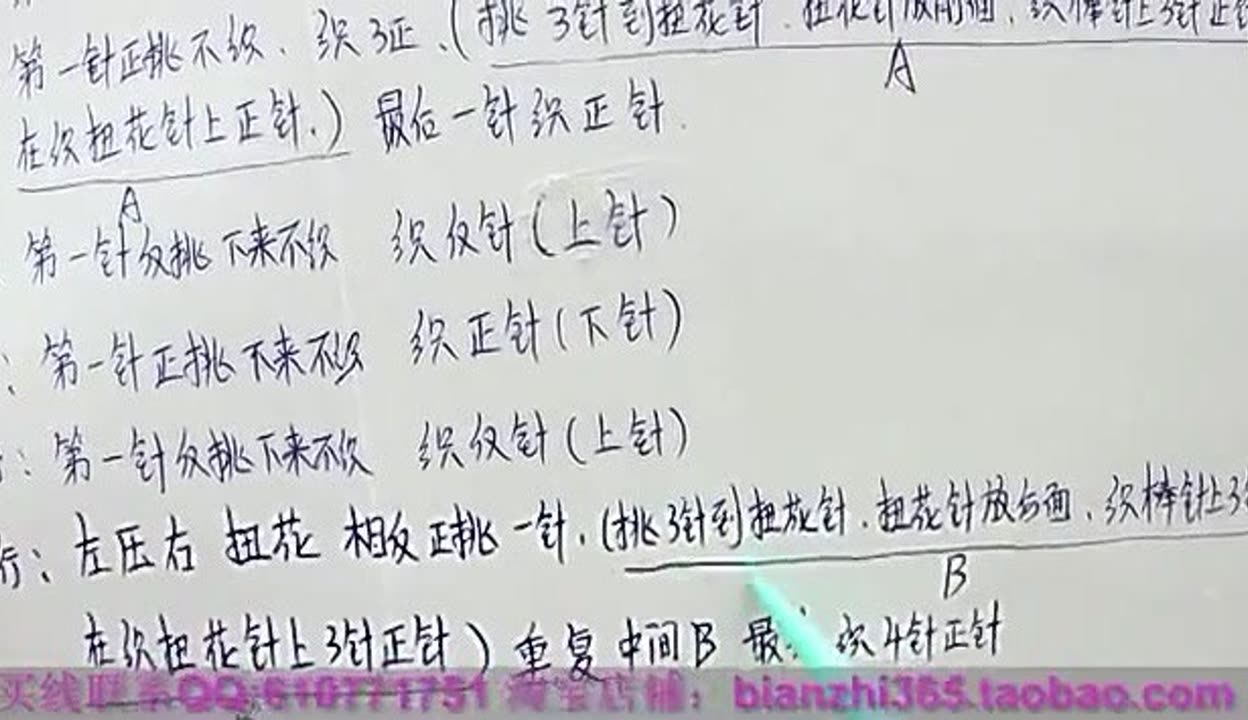 第一针正挑不织、织3正、(挑3针到扭花针、扭花针放前面、织棒针上3针正针
A
在织扭花针上正针.) 最后一针织正针.
A
第一针反挑下来不织 织反针(上针)
: 第一针正挑下来不织 织正针(下针)
: 第一针反挑下来不织 织反针(上针)
行: 左压右 扭花 相反 正挑一针.(挑3针到扭花针.扭花针放后面、织棒针上3
B
在织扭花针上3针正针) 重复中间B 最 织4针正针
买线联系QQ:610771751 淘宝店铺: bianzhi365.taobao.com